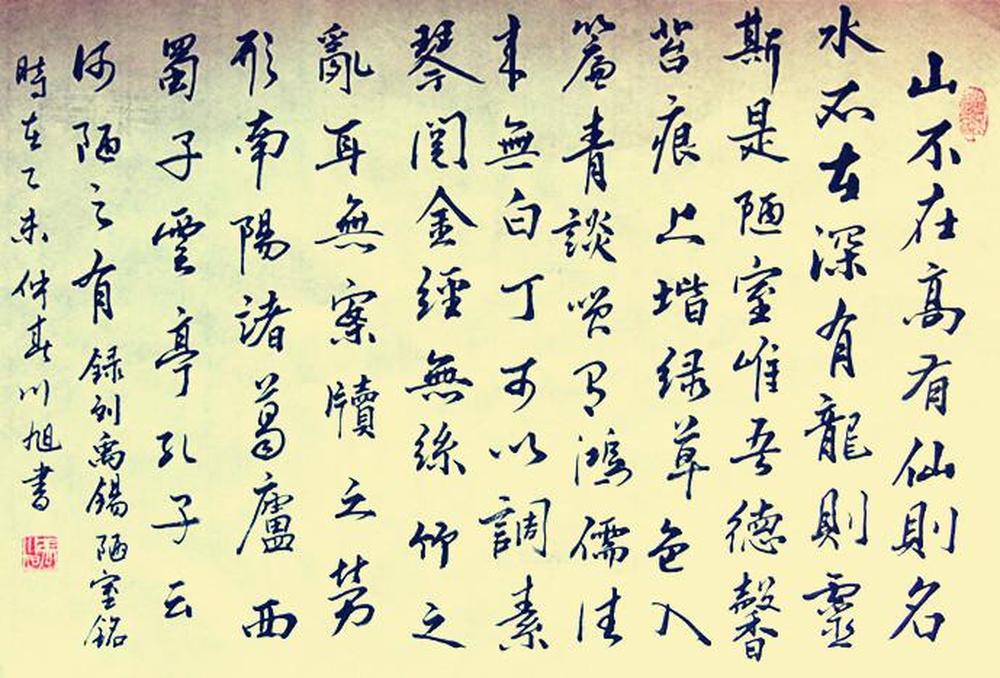 山不在高有仙則名
水不在深有龍則靈
斯是陋室惟吾德馨
苔痕上堦緑草色入
簾青談笑有鴻儒往
来無白丁可以調素
琴閱金經無絲竹之
亂耳無案牘之勞
形南陽諸葛廬西
蜀子雲亭孔子云
何陋之有 録刘禹錫陋室銘
時在乙未仲春川旭書